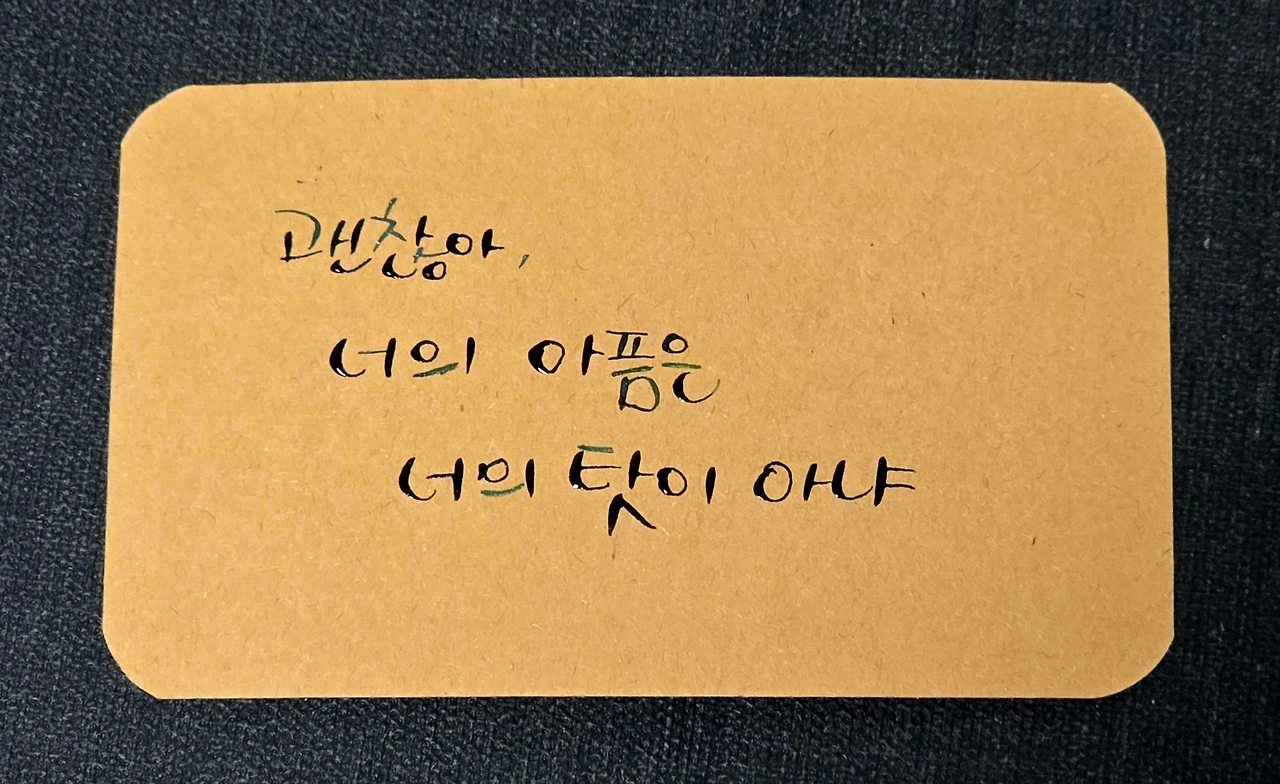 괜찮아,
너의 아픔은
너의 탓이 아냐